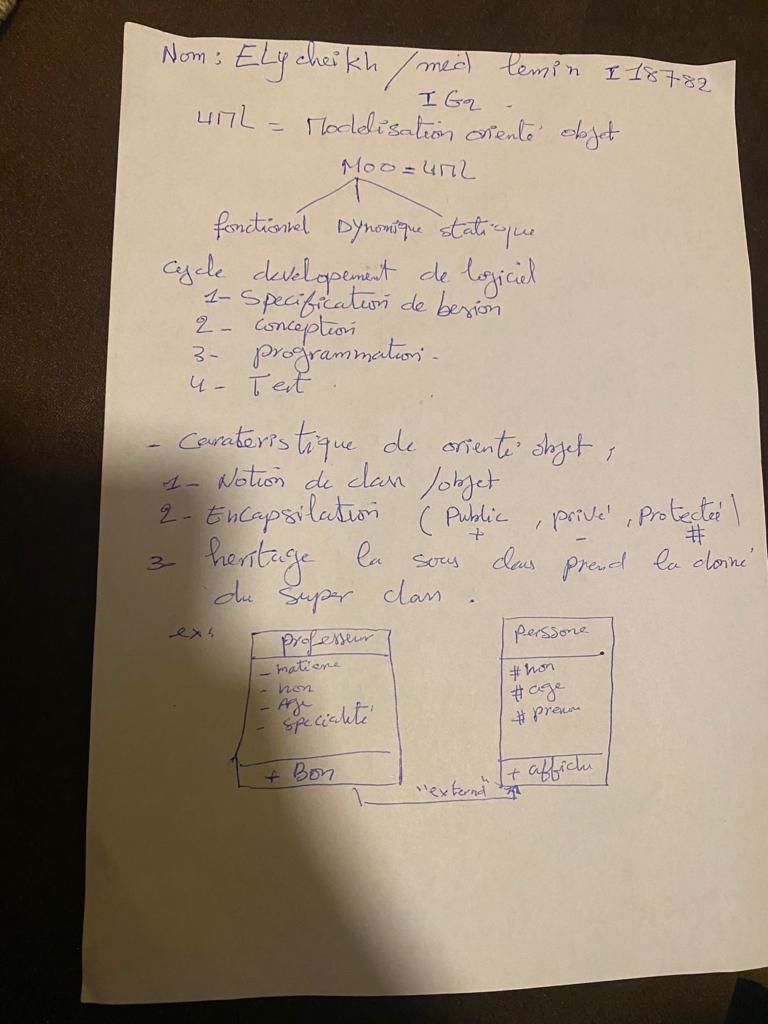 Nom : ELy cheikh / med lemin I 18782
IG2 .
UML = Moddisation orienté objet
MOO = UML
fonctionnel Dynomique statique
Cycle developement de logiciel
1- Specification de besion
2 - conception
3 - programmation .
4 - Test .
- Carateristique de orienté objet ,
1 - Notion de class / objet
2 - Encapsilation ( Public , privé , Protecteé )
+ - #
3 heritage la sous class prend la donné
du super class .
ex :
professeur
- matiere
- non
- Age
- specialité
+ Bon
perssone
# non
# age
# prenom
+ affichu
"extend"